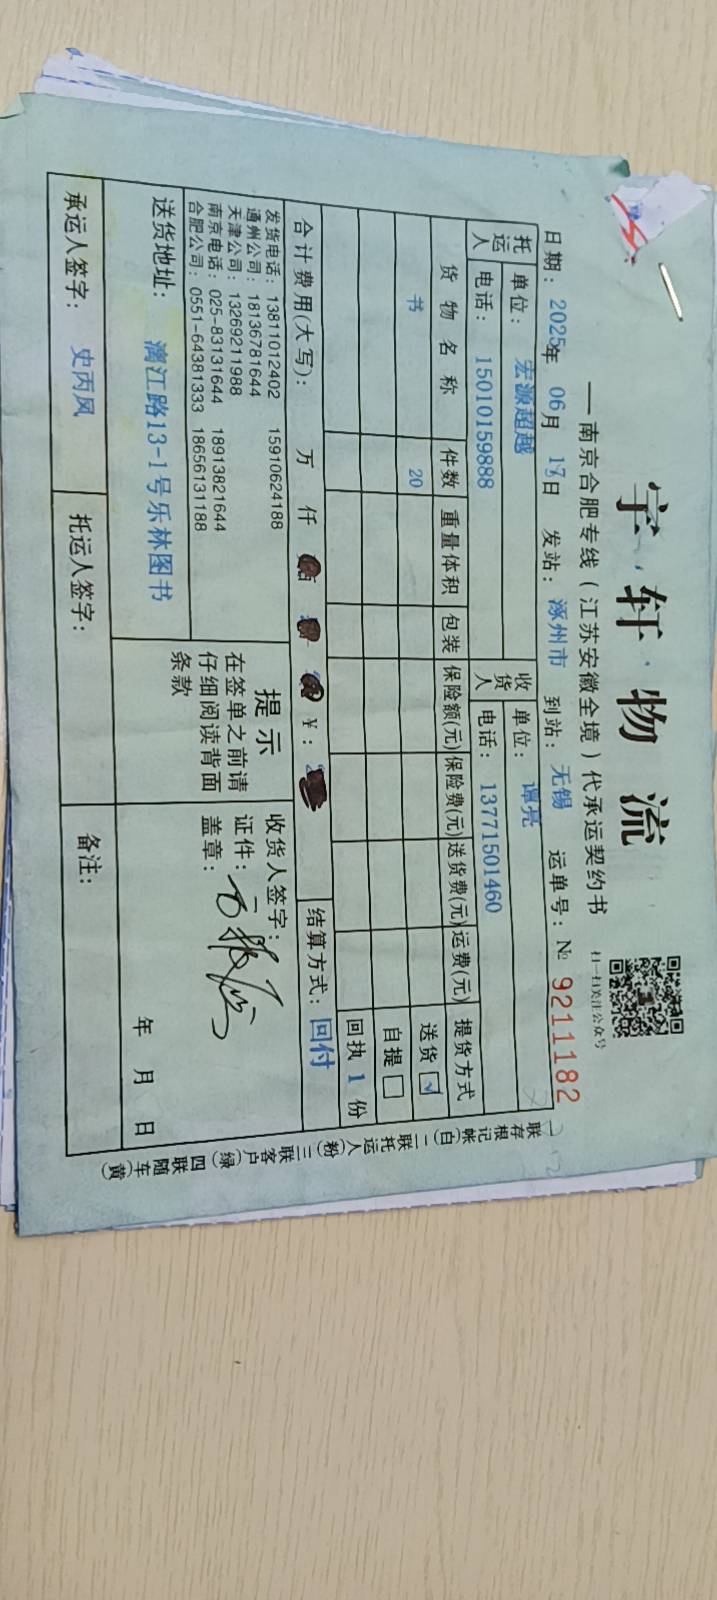 宇轩物流
扫一扫关注公众号
—南京合肥专线(江苏安徽全境)代承运契约书
日期: 2025年 06月 18日 发站: 涿州市 到站: 无锡 运单号: № 9211182
托运人 单位: 宏源超越 收货人 单位: 谭亮
电话: 15010159888 电话: 13771501460
货物名称 件数 重量体积 包装 保险额(元) 保险费(元) 送货费(元) 运费(元) 提货方式
书 20 送货 ☑
自提 □
回执 1 份
合计费用(大写): 万 仟 ¥: 结算方式: 回付
发货电话: 13811012402 15910624188
通州公司: 18136781644
天津公司: 13269211988
南京电话: 025-83131644 18913821644
合肥公司: 0551-64381333 18656131188
提示
在签单之前请
仔细阅读背面
条款
收货人签字:
证件:
盖章:
年 月 日
送货地址: 漓江路13-1号乐林图书
承运人签字: 史丙凤 托运人签字: 备注:
一联存根记帐(白)二联托运人(粉)三联客户(绿)四联随车(黄)